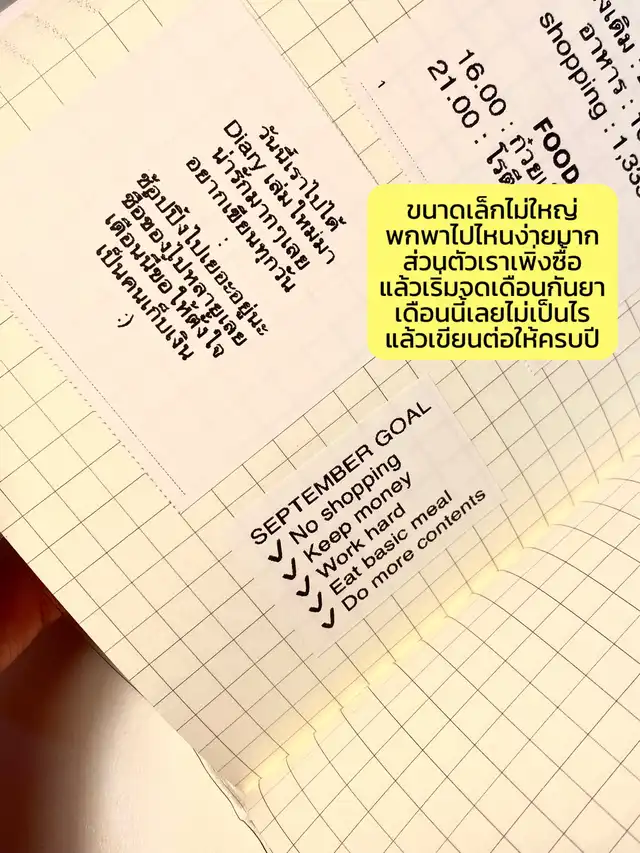 วันนี้เราไปได้
Diary เล่มใหม่มา
น่ารักมากๆเลย
อยากเขียนทุกวัน
:
ช้อปปิ้งไปเยอะอยู่นะ
ซื้อของไปหลายเลย
เดือนนี้ขอให้ตั้งใจ
เป็นคนเก็บเงิน
:)
1
อาหาร :
shopping : 1,33
FOOD
16.00 :
21.00 :
ขนาดเล็กไม่ใหญ่
พกพาไปไหนง่ายมาก
ส่วนตัวเราเพิ่งซื้อ
แล้วเริ่มจดเดือนกันยา
เดือนนี้เลยไม่เป็นไร
แล้วเขียนต่อให้ครบปี
SEPTEMBER GOAL
✓ No shopping
✓ Keep money
✓ Work hard
✓ Eat basic meal
✓ Do more contents